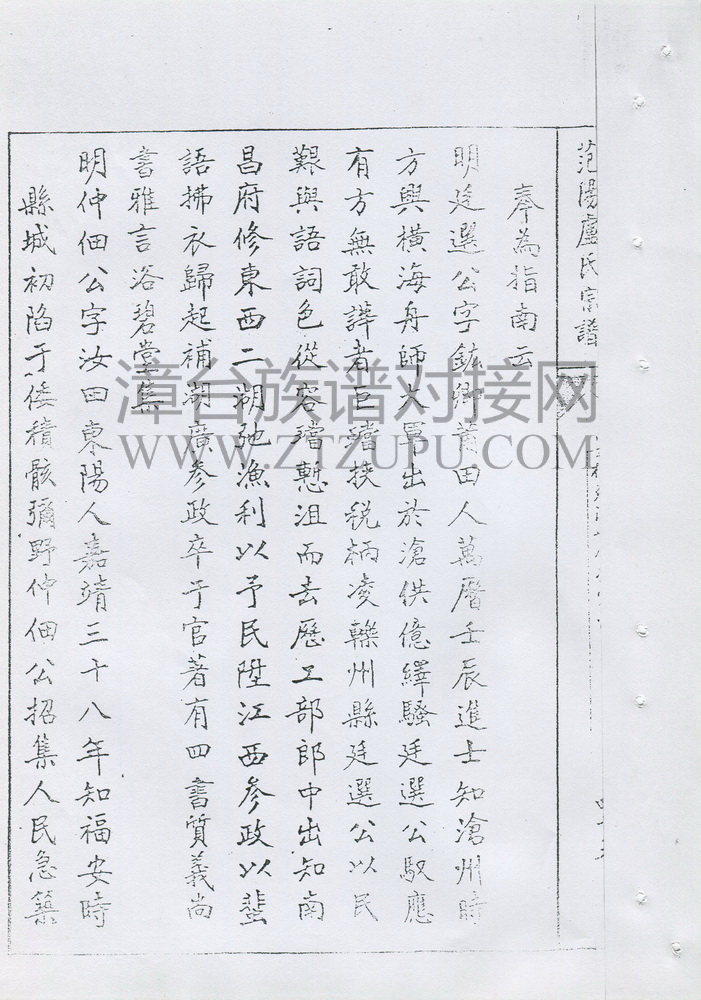 范陽盧氏宗譜
奉為指南云
明廷選公字鉉卿莆田人萬曆壬辰進士知滄州時
方與橫海舟師大軍出於滄供億繹騷廷選公馭應
有方無敢譁者巨璫挾税柄凌轢州縣廷選公以民
艱與語詞色從容璫慙沮而去歷工部郎中出知南
昌府修東西二湖弛漁利以予民陞江西參政以蜚
語拂衣歸起補湖廣參政卒于官著有四書質義尚
書雅言浴碧堂集
明仲佃公字汝田東陽人嘉靖三十八年知福安時
縣城初陷于倭積骸彌野仲佃公招集人民急築
漳台族谱对接网
WWW.ZTZUPU.COM